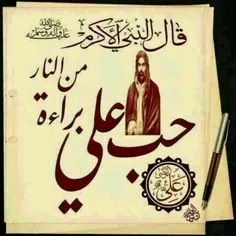 قال النبي الأكرم
صلى الله عليه وآله وسلم
حب علي
براءة
من النار
علي